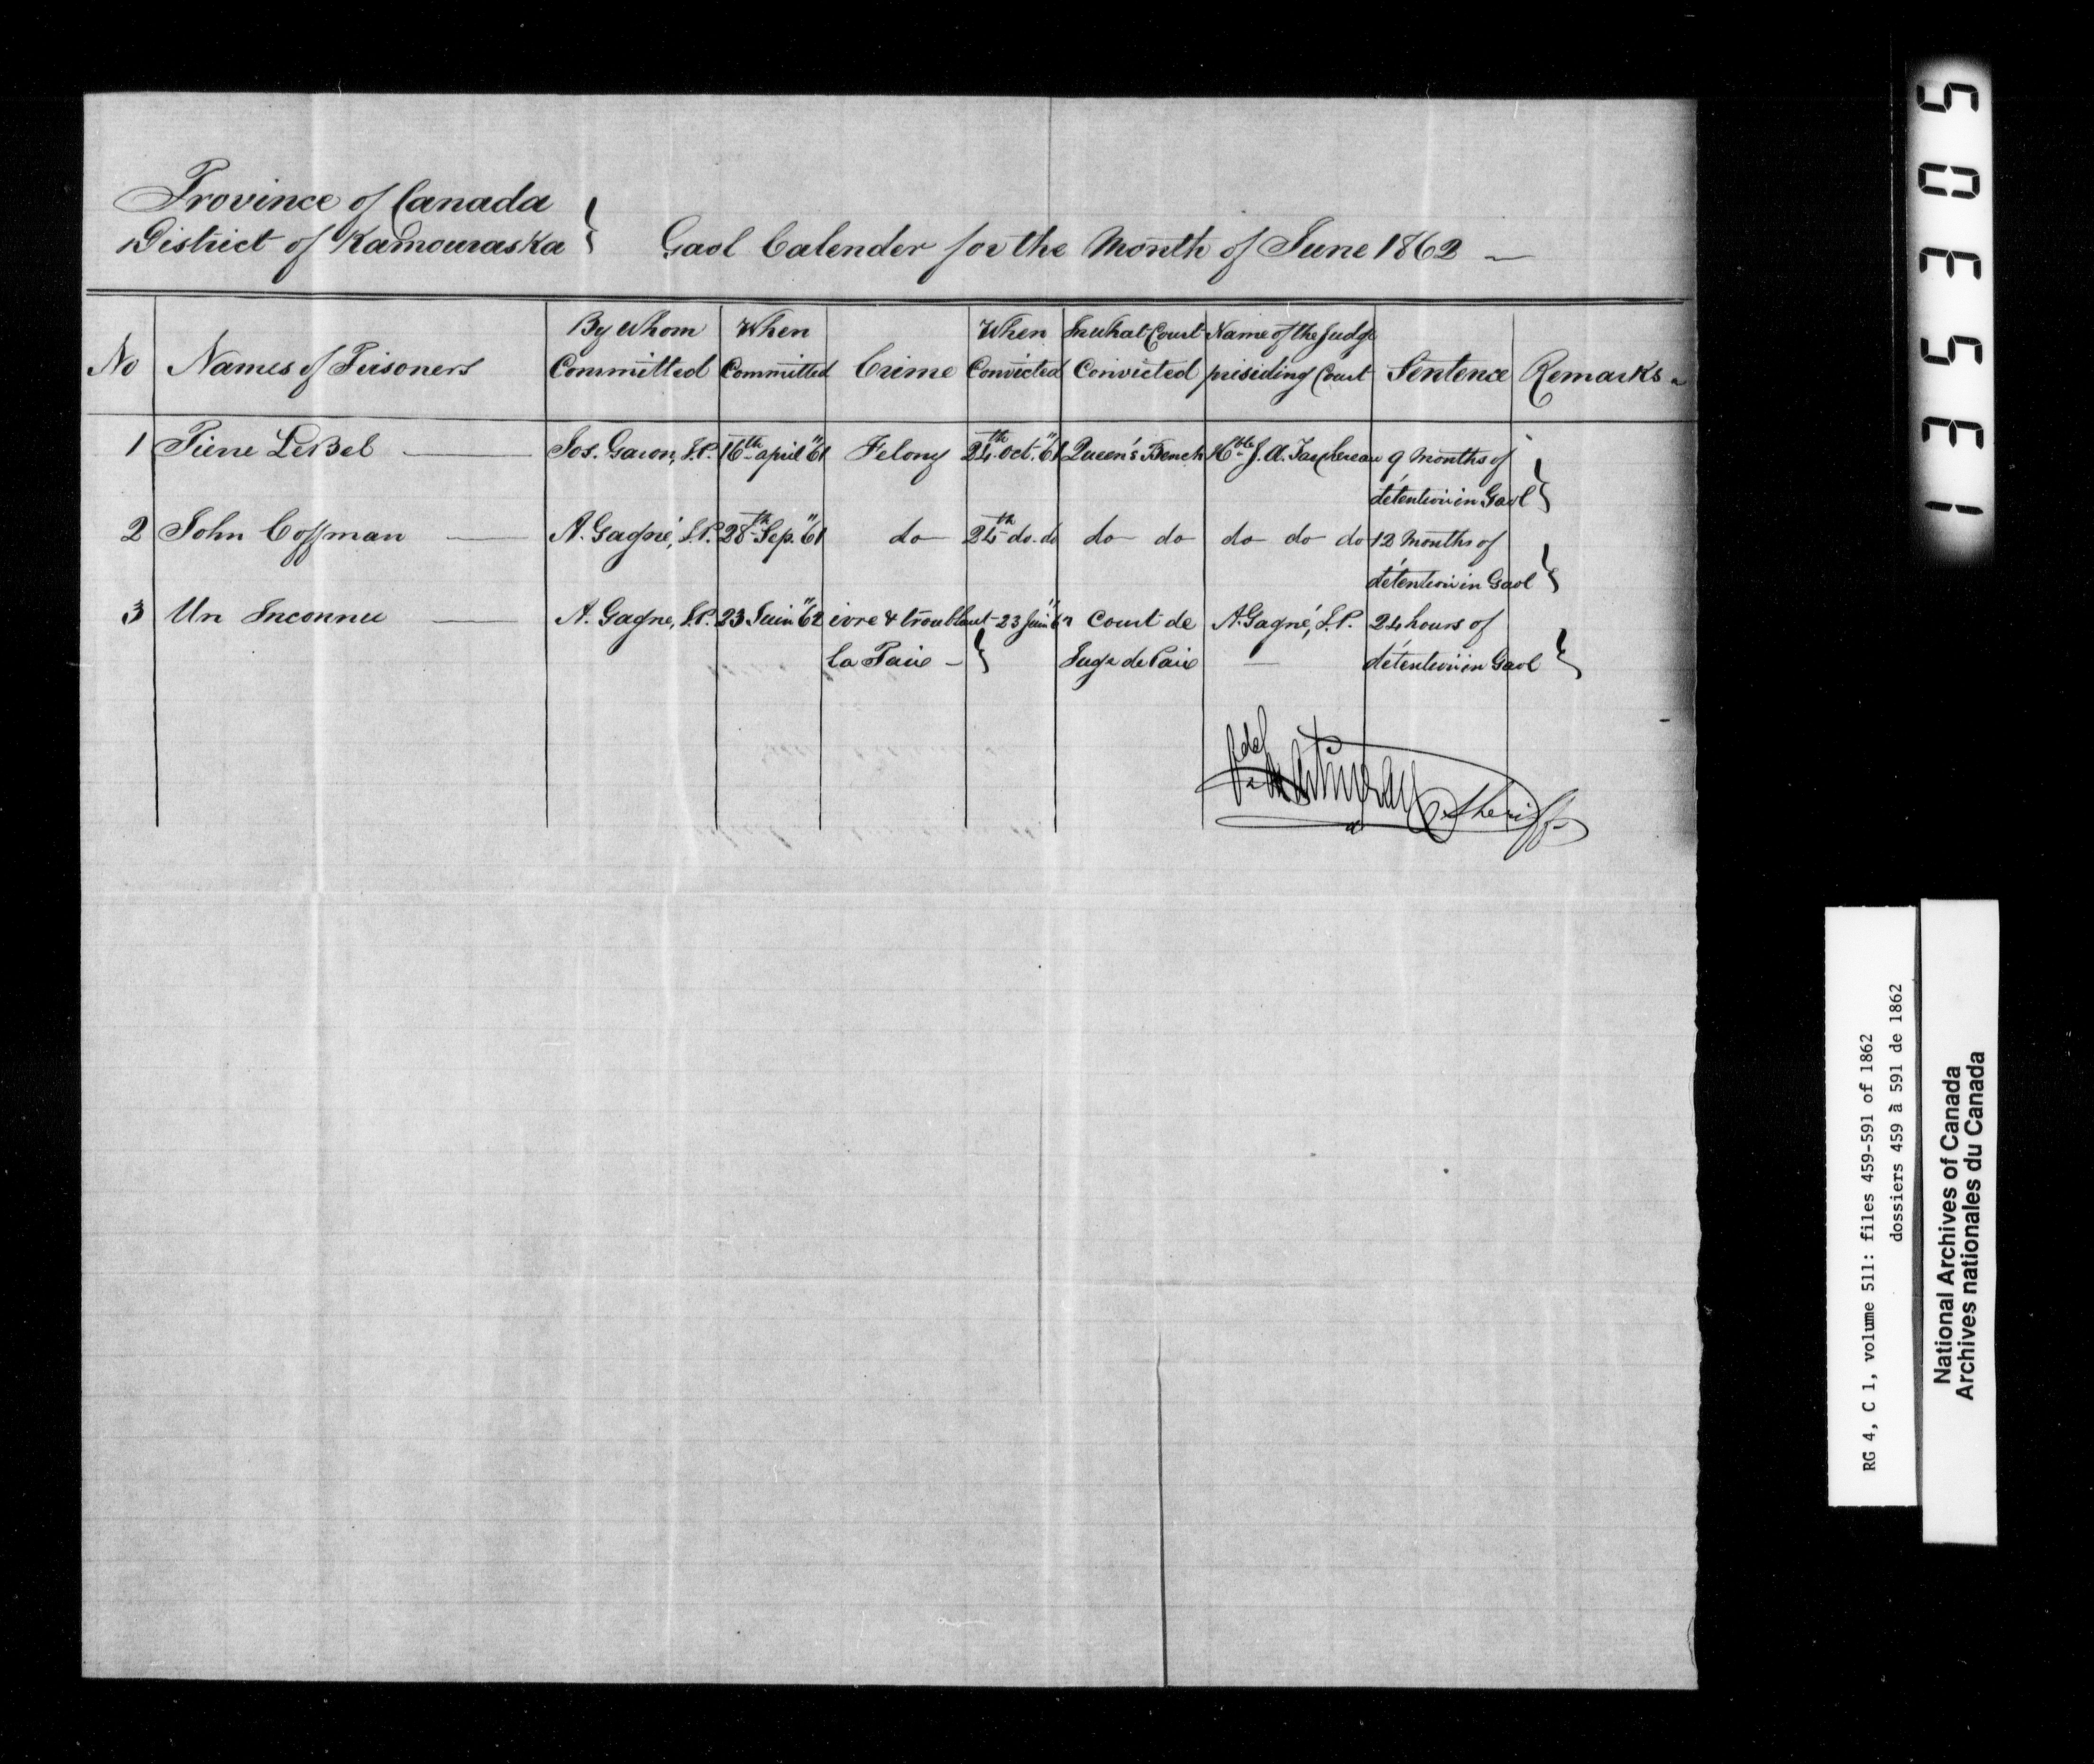 Province of Canada
District of Kamouraska } Gaol Calender for the Month of June 1862 —
No | Names of Prisoners | By Whom Committed | When Committed | Crime | When Convicted | In what Court Convicted | Name of the Judge prisiding Court | Sentence | Remarks
1 | Pierre LeBel — | Jos. Garon, J.P. | 16th april "61 | Felony | 24th Oct. "61 | Queen's Bench | Hble J. A. Taschereau | 9 Months of détention in Gaol }
2 | John Coffman — | A. Gagné, J.P. | 28th Sep. "61 | do | 24th do. do | do do | do do do | 12 Months of détention in Gaol }
3 | Un Inconnu — | A. Gagné, J.P. | 23 Juin "62 | ivre & troublant la Paix — } | 23 Juin "62 | Court de Juge de Paix | A. Gagné, J.P. — | 24 hours of détention in Gaol }
Sheriff
135305
RG 4, C 1, volume 511: files 459-591 of 1862
dossiers 459 à 591 de 1862
National Archives of Canada
Archives nationales du Canada